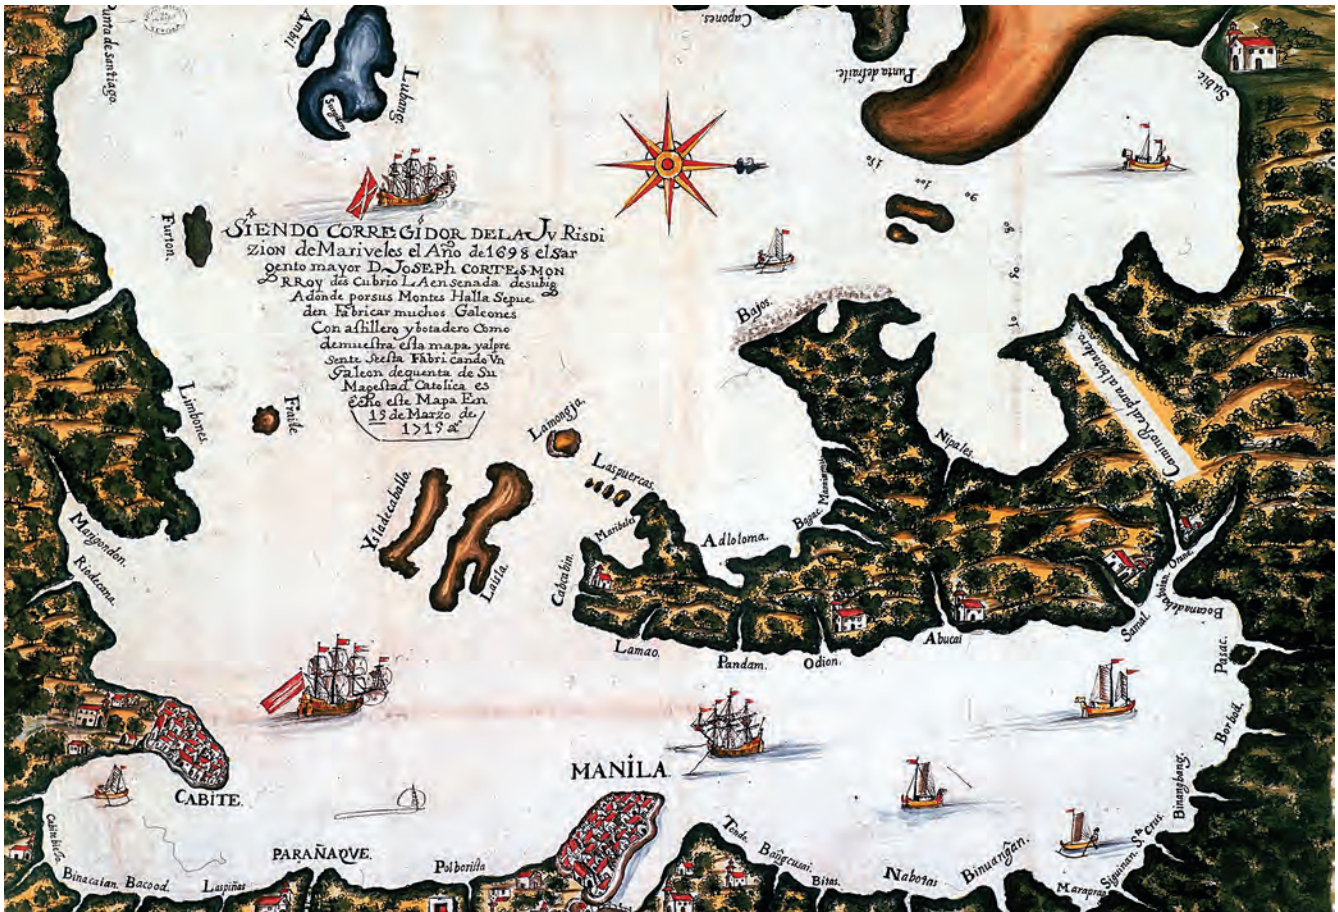 Punta de santiago.
Ambil
Lubang
Capones.
Punta de fraile.
Subic
150
100
90
Furton.
SIENDO CORREGIDOR DE LA JURISDI
zion de Mariveles el Año de 1698 el Sar
gento mayor D. JOSEPh CORTES MON
RRoy des Cubrio LA en senada de subig
Adonde por sus Montes Halla Sepue
den Fabricar muchos Galeones
Con astillero y botadero Como
demuestra esta mapa yalpre
sente Seesta Fabricando Un
Galeon de quenta de Su
Magestad Catolica es
Echo este Mapa En
15 de Marzo de
1715 a.
Bajos.
Camino Real para al botadero.
Limbones.
Fraile
Lamongja.
Laspuercas.
Nipales.
Ysladecaballo.
Laisla.
Maribeles
Adlotoma.
Bagac.
Cabcabin.
Marigondon.
Riodecana.
Lamao.
Pandam.
Odion.
Abucai
Samal.
Orane.
Pasac.
Borbod.
Binangbang.
CABITE.
MANILA.
PARAÑAQVE.
Polborista
Cabitebieio.
Binacaian.
Bacood.
Laspiñas
Tondo.
Bangcusai.
Bitas.
Nabotas
Binuangan.
Maraprap
Siguinan.
Sta Crus.